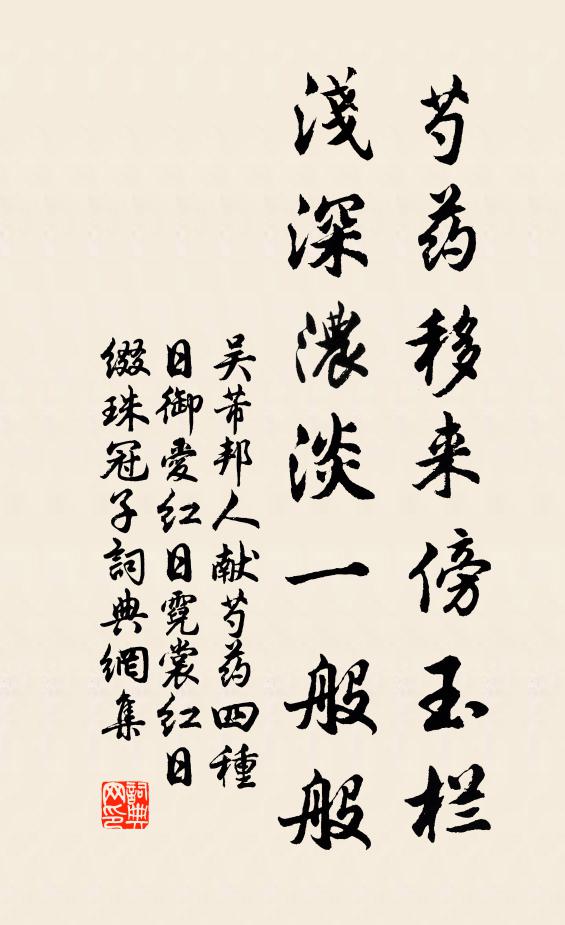 芍药移来傍玉栏
淺深濃淡一般般
吴芾邦人献芍药四種
日御愛红日霓裳红日
缀珠冠子詞典網集
詞典网印